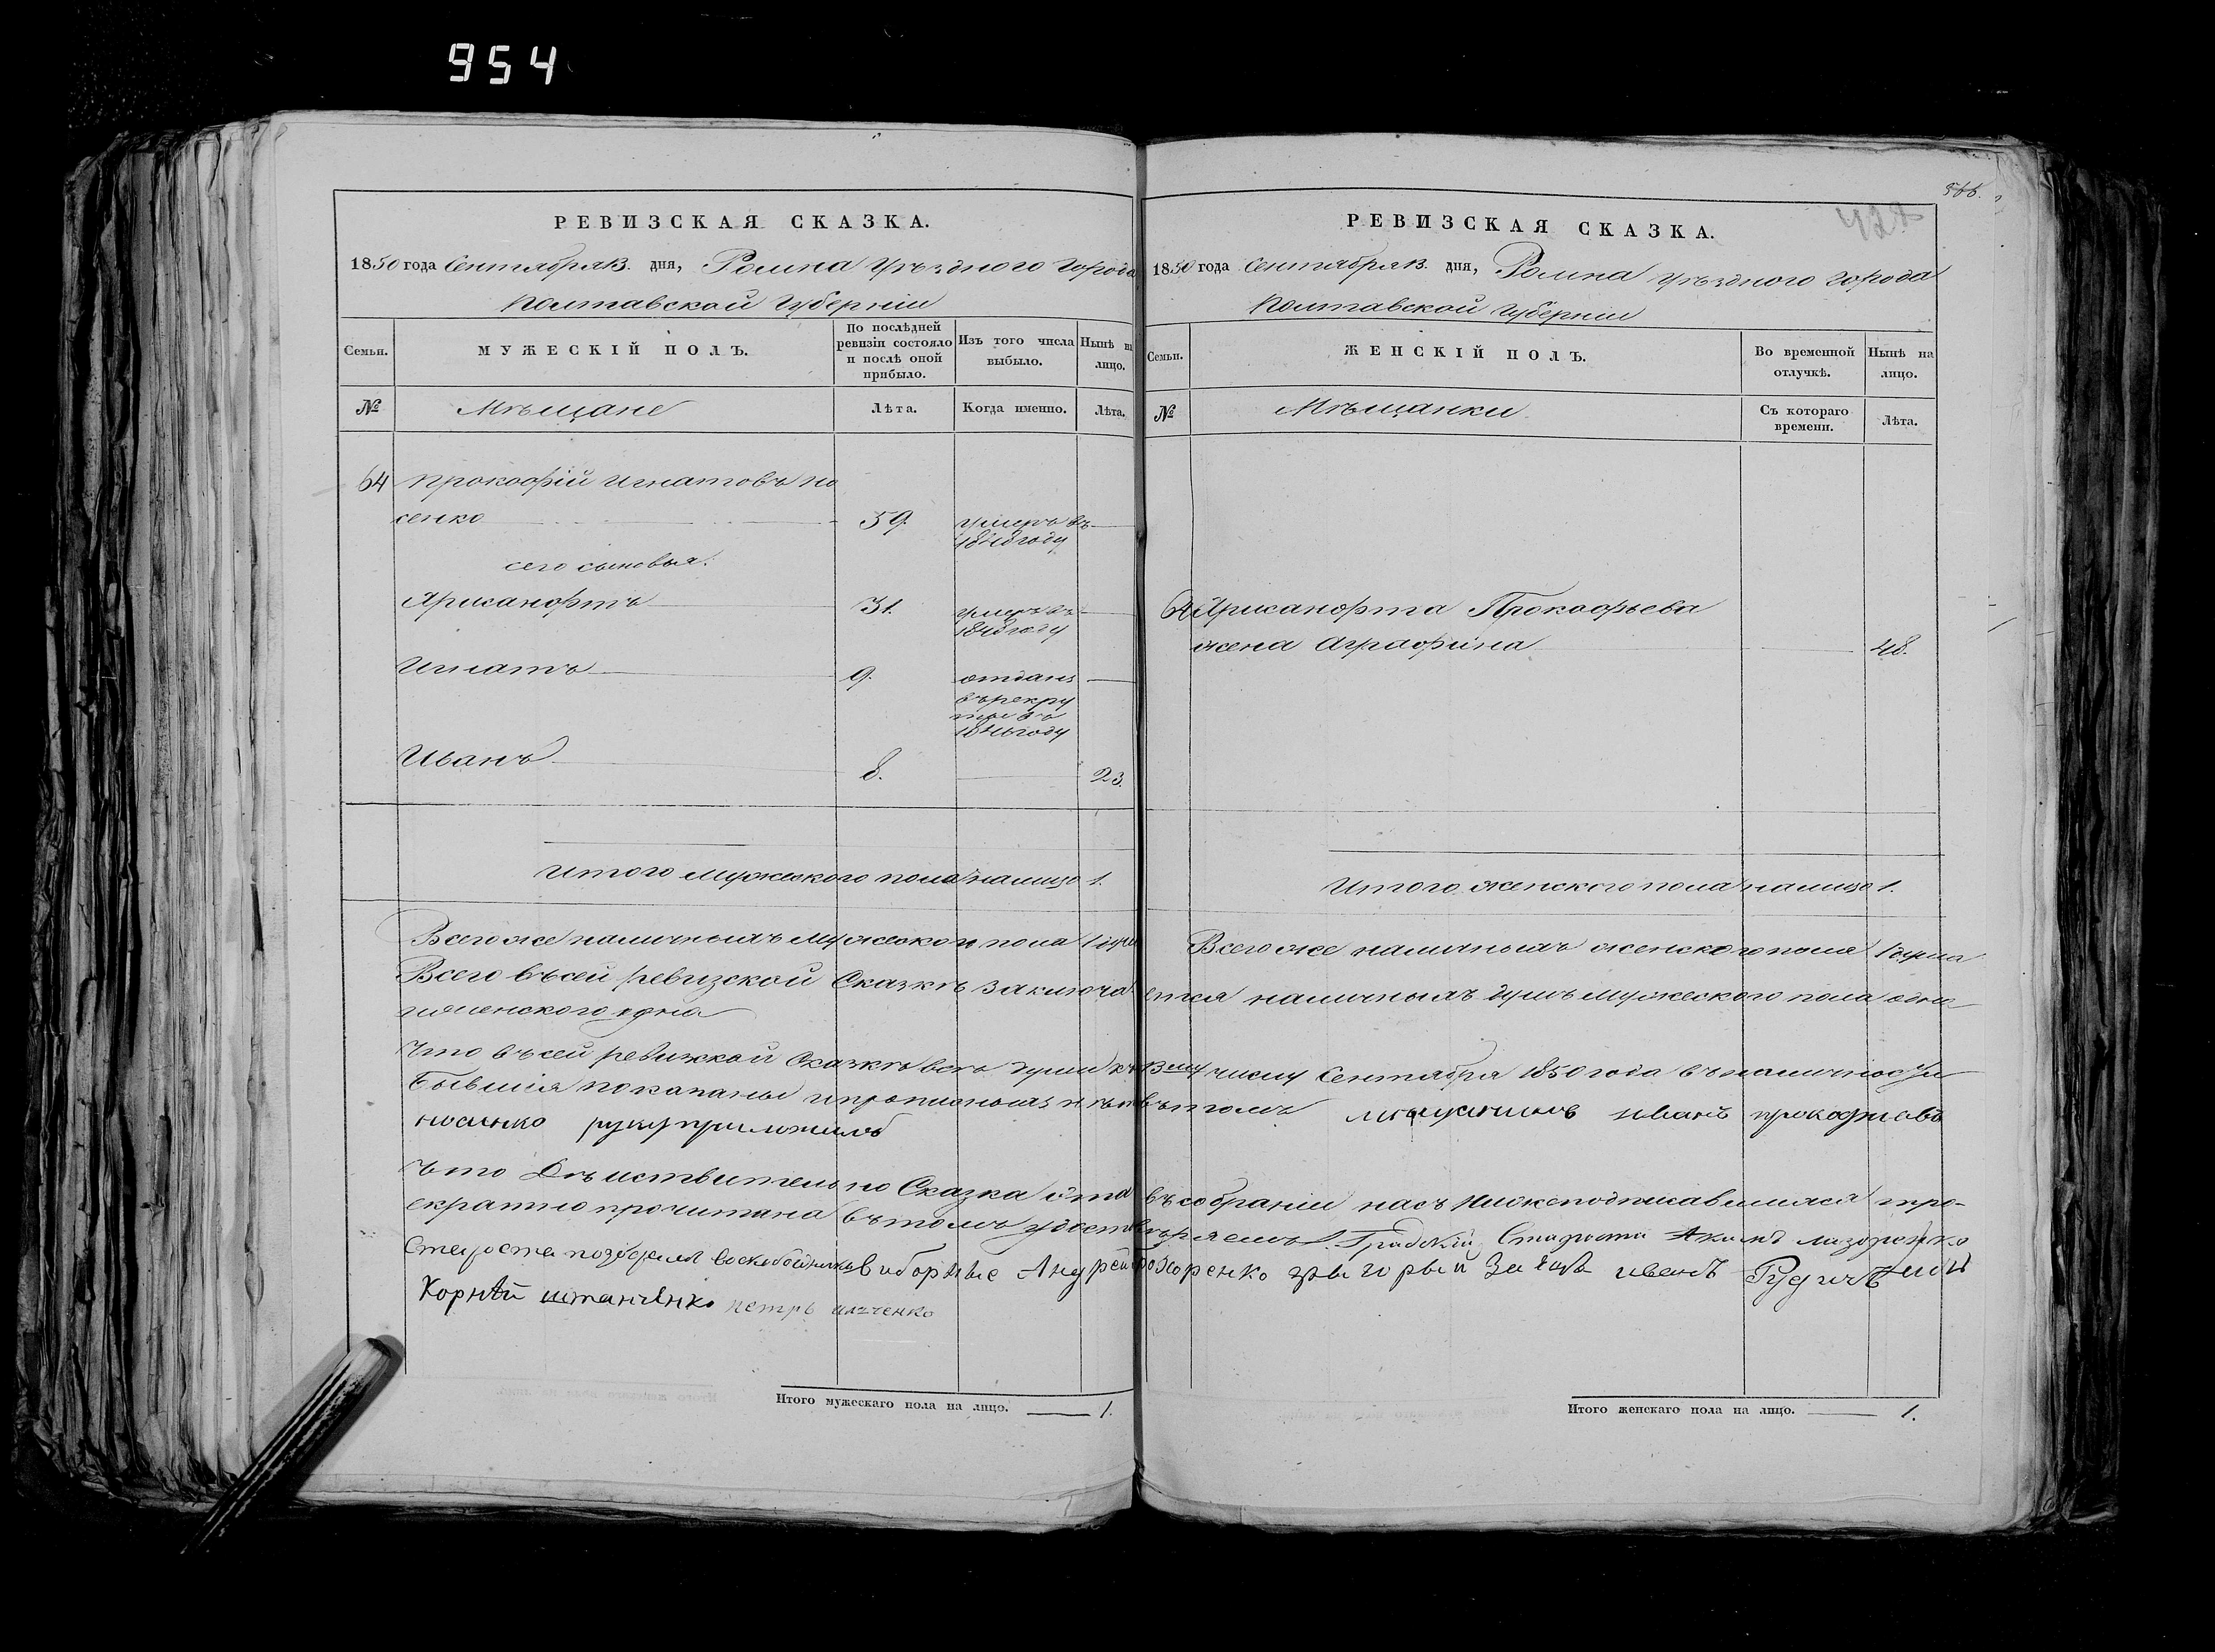 954
566.
РЕВИЗСКАЯ СКАЗКА.
1850 года Сентября 13. дня, Ромна Уѣзднаго Города
Полтавской Губерніи
Семьи.
МУЖЕСКІЙ ПОЛЪ.
По послѣдней ревизіи состояло и послѣ оной прибыло.
Изъ того числа выбыло.
Нынѣ на лицо.
№
Мѣщане
Лѣта.
Когда именно.
Лѣта.
64 Прокофій Игнатовъ Но
сенко 59. умеръ въ
1848 году
его сыновья:
Арисанфтъ 31. умеръ въ
1848 году
Игнатъ 9. отданъ
въ рекру
ты въ
1846 году
Иванъ 8. 23.
Итого мужеского пола налицо 1.
РЕВИЗСКАЯ СКАЗКА.
1850 года Сентября 13. дня, Ромна Уѣзднаго Города
Полтавской Губерніи
Семьи.
ЖЕНСКІЙ ПОЛЪ.
Во временной отлучкѣ.
Нынѣ на лицо.
№
Мѣщанки
Съ котораго времени.
Лѣта.
64 Арисанфта Прокофьева
жена Аграфина 48.
Итого женского пола налицо 1.
Всего же наличныхъ мужеского пола 1 душа
Всего же наличныхъ женского пола 1 душа
Всего въ сей ревизской Сказкѣ заключается наличныхъ душъ мужеского пола одна
и женского одна
Что въ сей ревизкой Сказкѣ всѣ души къ 13му числу Сентября 1850 года въ наличности
бывшія показаны и прописныхъ нѣтъ въ томъ мѣщанинъ иванъ прокофиовъ
носенко руку приложилъ
Что Дѣйствительно Сказка ета въ собраніи насъ нижеподписавшихся тро-
екратно прочитана въ томъ удостовѣряемъ. Градскій Староста Акимъ лазоренко
Староста виборные Андрей грыгорый Заецъ иванъ
Корнѣй штанченко петръ
Итого мужескаго пола на лицо. 1.
Итого женскаго пола на лицо. 1.